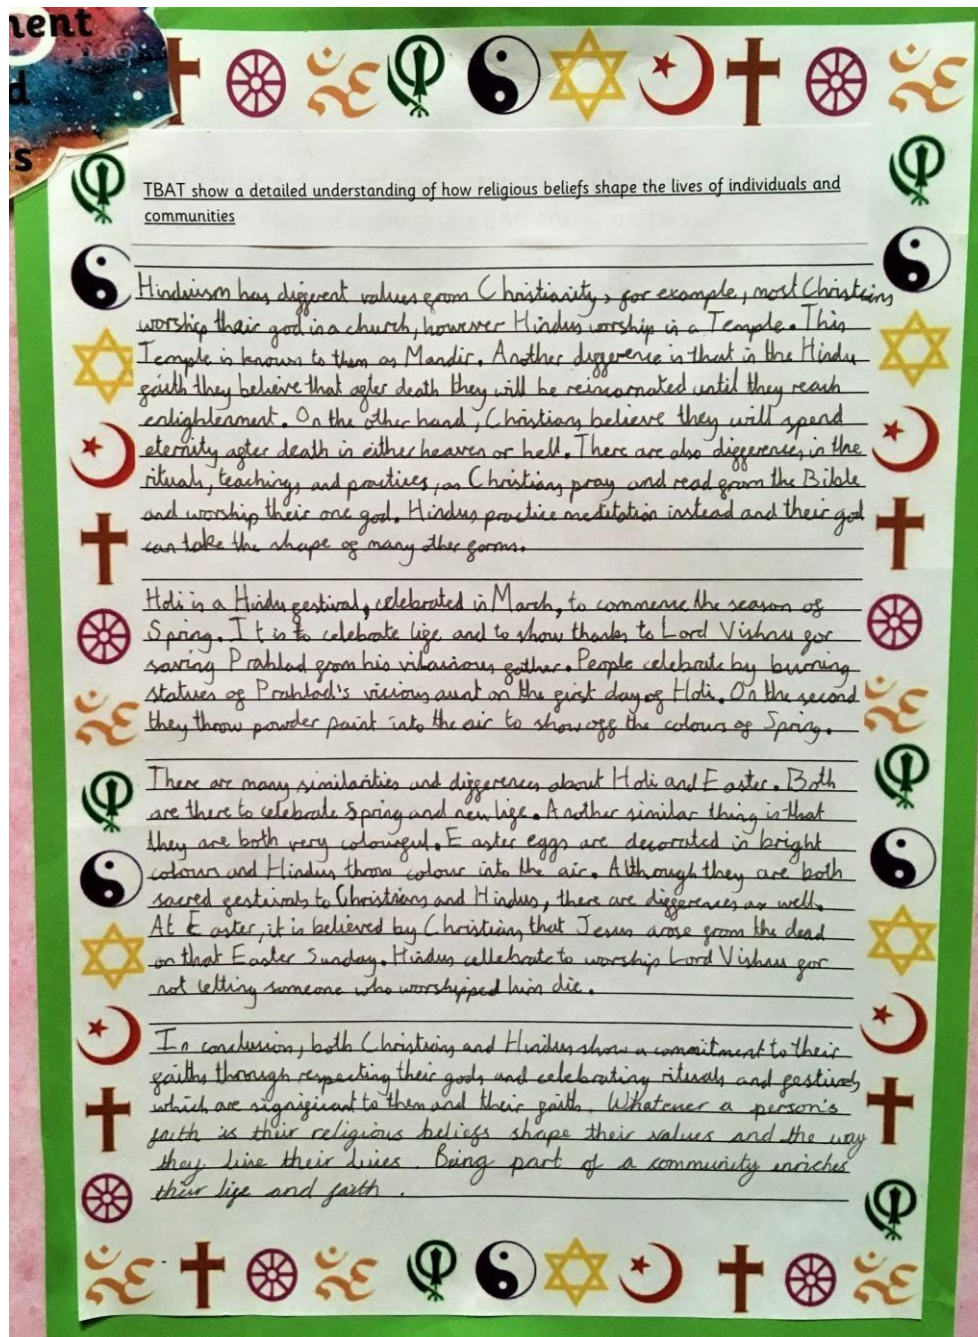 ment
d
s
TBAT show a detailed understanding of how religious beliefs shape the lives of individuals and
communities
Hinduism has different values from Christianity, for example, most Christians
worship their god in a church, however Hindus worship in a Temple. This
Temple is known to them as Mandir. Another difference is that in the Hindu
faith they believe that after death they will be reincarnated until they reach
enlightenment. On the other hand, Christians believe they will spend
eternity after death in either heaven or hell. There are also differences in the
rituals, teachings and practices, as Christians pray and read from the Bible
and worship their one god. Hindus practice meditation instead and their god
can take the shape of many other forms.
Holi is a Hindu festival, celebrated in March, to commence the season of
Spring. It is to celebrate life and to show thanks to Lord Vishnu for
saving Prahlad from his villainous father. People celebrate by burning
statues of Prahlad's vicious aunt on the first day of Holi. On the second
they throw powder paint into the air to show off the colours of Spring.
There are many similarities and differences about Holi and Easter. Both
are there to celebrate Spring and new life. Another similar thing is that
they are both very colourful. Easter eggs are decorated in bright
colours and Hindus throw colour into the air. Although they are both
sacred festivals to Christians and Hindus, there are differences as well.
At Easter, it is believed by Christians that Jesus arose from the dead
on that Easter Sunday. Hindus cellebrate to worship Lord Vishnu for
not letting someone who worshipped him die.
In conclusion, both Christians and Hindus show a commitment to their
faiths through respecting their gods and celebrating rituals and festivals
which are significant to them and their faith. Whatever a person's
faith is their religious beliefs shape their values and the way
they live their lives. Being part of a community enriches
their life and faith.